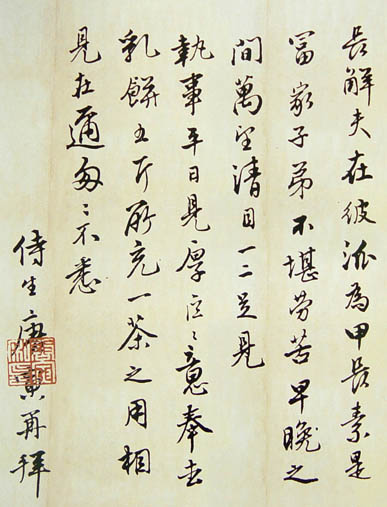 長解夫在彼派為甲長素是
富家子弟不堪勞苦早晚之
間萬望清目一二足見
執事平日見厚區〻之意奉去
乳餅五斤所充一茶之用相
見在邇匆〻不悉
侍生唐寅再拜